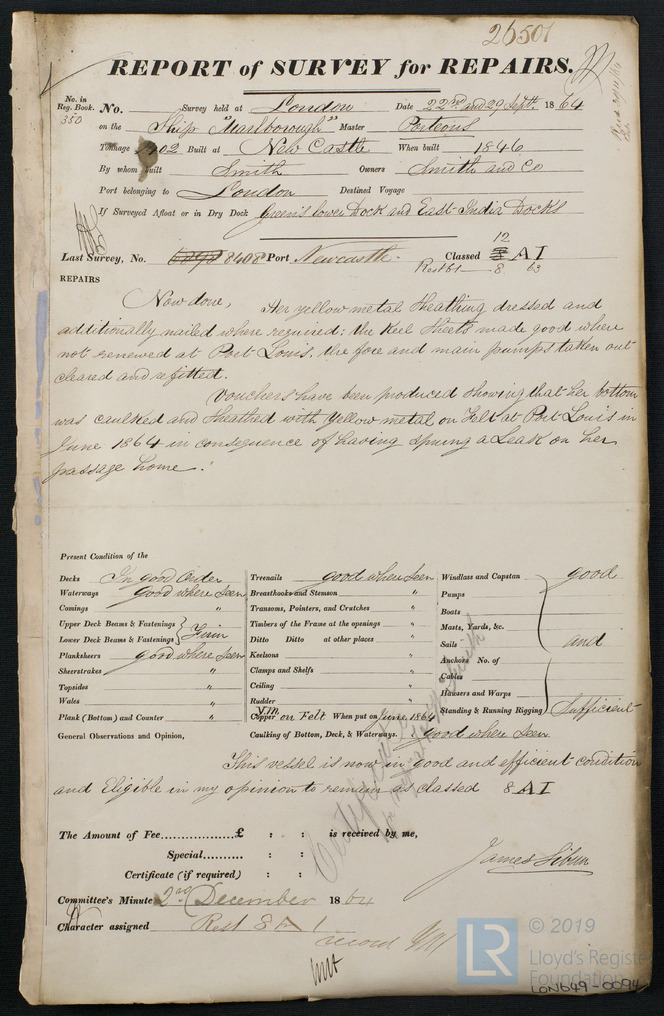 26501
REPORT of SURVEY for REPAIRS.
No. in
Reg. Book.
350
No. Survey held at London Date 22nd and 29 Septr. 1864
on the Ship "Marlborough" Master Porteous
Tonnage 1402 Built at New Castle When built 1846
By whom built Smith Owners Smith and Co
Port belonging to London Destined Voyage
If Surveyed Afloat or in Dry Dock Green's lower Dock and East-India Docks
Last Survey, No. 8408 Port Newcastle. Classed 12 A I
Rest 61 - 8 63
REPAIRS
Now done, Her yellow metal Sheathing dressed and
additionally nailed where required; the Keel Sheets made good where
not renewed at Port Louis, the fore and main pumps taken out
cleared and refitted.
Vouchers have been produced showing that her bottom
was caulked and Sheathed with Yellow metal on Felt at Port Louis in
June 1864 in consequence of having sprung a Leak on her
passage home.
Present Condition of the
Decks In good Order
Waterways good where Seen
Comings "
Upper Deck Beams & Fastenings } Firm
Lower Deck Beams & Fastenings
Planksheers good where Seen
Sheerstrakes "
Topsides "
Wales "
Plank (Bottom) and Counter "
Treenails good where Seen
Breasthooks and Stemson "
Transoms, Pointers, and Crutches "
Timbers of the Frame at the openings "
Ditto Ditto at other places "
Keelsons "
Clamps and Shelfs "
Ceiling "
Rudder "
Y.M. Copper on Felt When put on June, 1864
Caulking of Bottom, Deck, & Waterways. good where Seen.
Windlass and Capstan good
Pumps
Boats
Masts, Yards, &c.
Sails and
Anchors No. of
Cables
Hausers and Warps
Standing & Running Rigging Sufficient
General Observations and Opinion,
This vessel is now in good and efficient condition
and Eligible in my opinion to remain as classed 8 A I
The Amount of Fee................£ : : is received by me,
Special.......... : :
Certificate (if required) : :
James Sibun
Committee's Minute 2nd December 1864
Character assigned Rest 8 A 1
© 2019
LR
Lloyd's Register
Foundation
LON649-0094